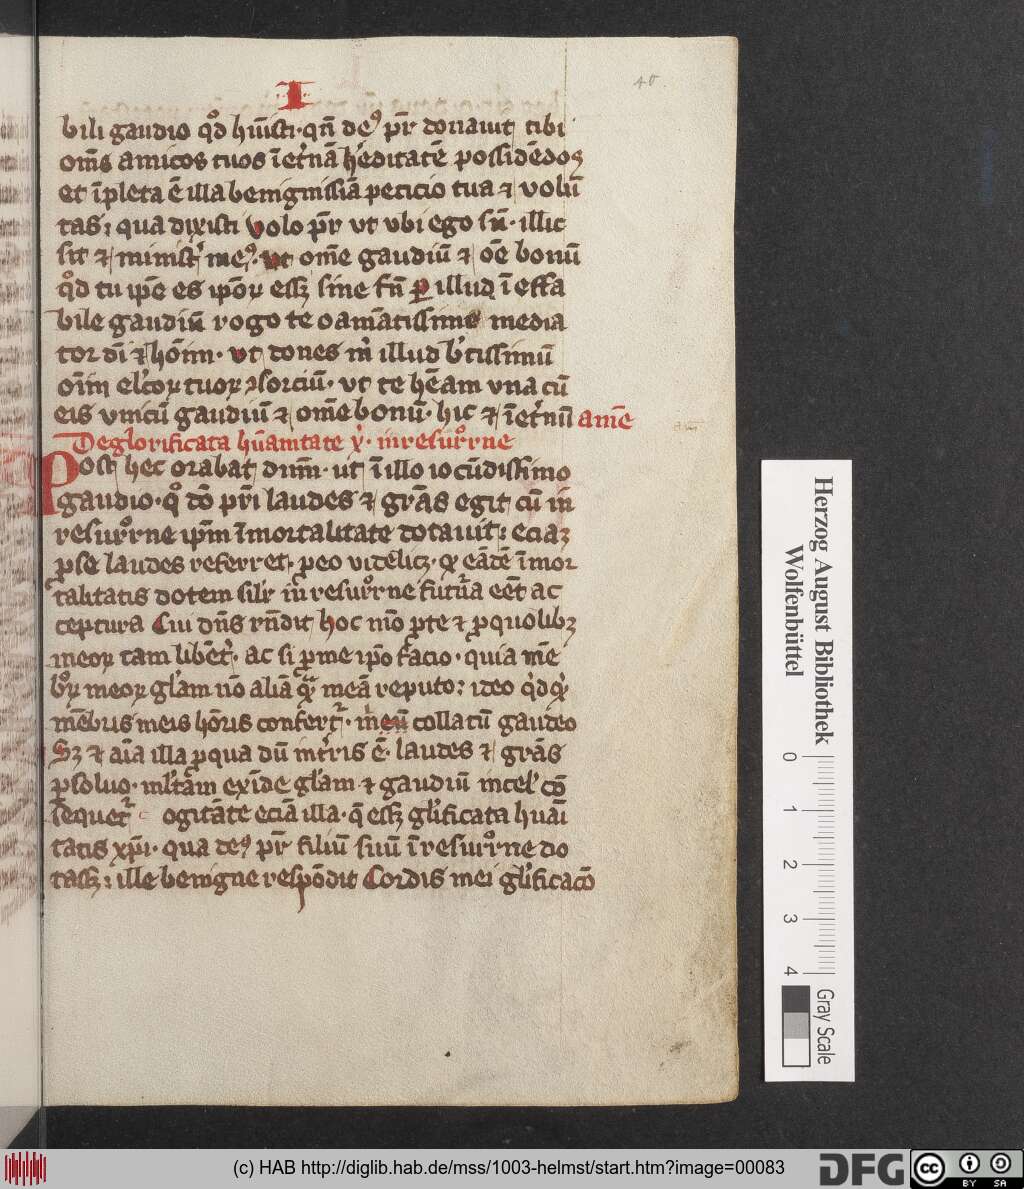 40
I
bili gaudio qͦd hūisti·qn̄ deꝰ pr̄ donauit tibi
om̄s amicos tuos ī et̓nā h̓editatē possidēdos
et īpleta ē illa benignissiā peticio tua ⁊ volū
tas; qua dixisti volo pr̄ vt vbi ego sū· illic
sit ⁊ minist̓ meꝰ. vt om̄e gaudiū ⁊ oē bonū
qͦd tu ip̄e es ip̄oꝝ essꝫ sine fn̄ ꝑ illud ī effa
bile gaudiū rogo te o amātissime media
tor dī ⁊ hōim· vt dones m̓ illud b̓tissimū
oīm el̓coꝝ tuoꝝ ꝯsorciū· vt te hēam vna cū
eis vnicū gaudiū ⁊ om̄e bonū· hic ⁊ ī et̓nū amē
De glorificata hūanitate x̓· in resurͦrne
Post hec orabat dn̄m· ut ī illo iocūdissimo
gaudio· qͦ dō pr̄i laudes ⁊ gr̄as egit cū in
resurͦrne ip̄m īmortalitate dotauit: eciaꝫ
ꝓ se laudes referret· ꝓ eo videlicꝫ· ꝙ eādē īmor
talitatis dotem sil̓r in resurͦrne futur̄a eēt ac
ceptura Cui dn̄s rn̄dit hoc mͦ ꝓ te ⁊ ꝓ quolibꝫ
meoꝝ tam libēt̓· ac si ꝓ me ip̄o facio· quia mē
broꝝ meoꝝ gl̓am nō aliā qͣꝫ meā reputo: ideo qͥdqͥd
mēbris meis hōris confert̓· in eū collatū gaudeo
Sꝫ ⁊ aīa illa ꝓ qua dū int̓ris ē· laudes ⁊ gr̄as
ꝑsoluo· ml̓tam exīde gl̓am ⁊ gaudiū in cel̓ cō
sequet̓ c ogitāte eciā illa· qͣ essꝫ gl̓ificata huāi
tatis xp̄i· qua deꝰ pr̄ filiū suū ī resurͦrne do
tassꝫ: ille benigne respōdit Cordis mei gl̓ificacō
Herzog August Bibliothek
Wolfenbüttel
0 1 2 3 4
Gray Scale
(c) HAB http://diglib.hab.de/mss/1003-helmst/start.htm?image=00083
DFG
cc BY SA